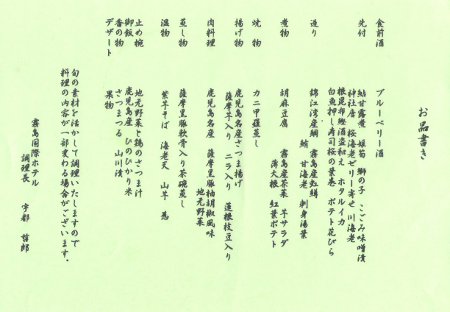 お品書き
食前酒　ブルーベリー酒
先付　鮎甘露煮　姫筍　鯛の子　こごみ味噌漬
神社唐　桜海老ゼリー寄せ　川海老
根昆布鮑酒盗和え　ホタルイカ
白魚押し寿司桜の葉巻　ポテト花びら
造り　錦江湾産鯛　霧島産虹鱒
鮪　甘海老　刺身湯葉
煮物　胡麻豆腐　霧島産茶菜　芋サラダ
蒲大根　紅葉ポテト
焼物　カニ甲羅蒸し
揚げ物　鹿児島名産さつま揚げ
薩摩芋入り　ニラ入り　蓮根枝豆入り
肉料理　鹿児島名産　薩摩黒豚柚胡椒風味
地元野菜
蒸し物　薩摩黒豚軟骨入り茶碗蒸し
温物　紫芋そば　海老天　山芋　葱
止め椀　地元野菜と鶏のさつま汁
御飯　鹿児島産ひのひかり米
香の物　さつまつる　山川漬
デザート　果物
旬の素材を活かして調理いたしますので
料理の内容が一部変わる場合がございます。
霧島国際ホテル
調理長　宇都　哲郎